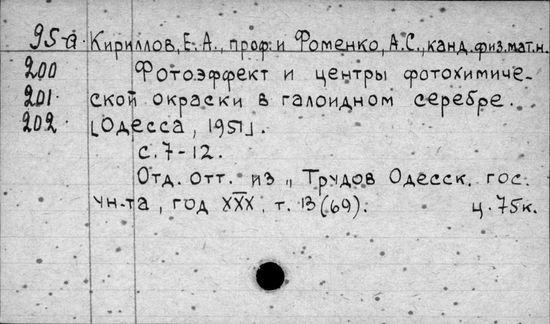 95-а Кириллов, Е. А., проф. и Фоменко, А.С., канд. физ.мат.н.
200 Фотоэффект и центры фотохимиче-
201 ской окраски в галоидном серебре.
202 [Одесса, 1951].
с. 7-12.
Отд. отт. из „Трудов Одесск. гос.
ун-та, год XXX, т. 13 (69). ц. 75к.